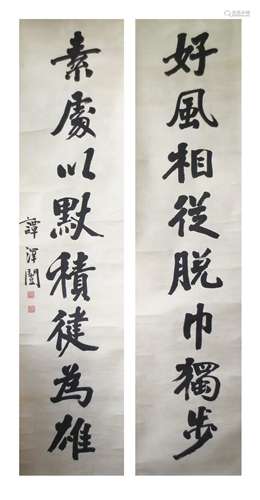 好風相從脱巾獨步
素處以默積健為雄
譚澤闓